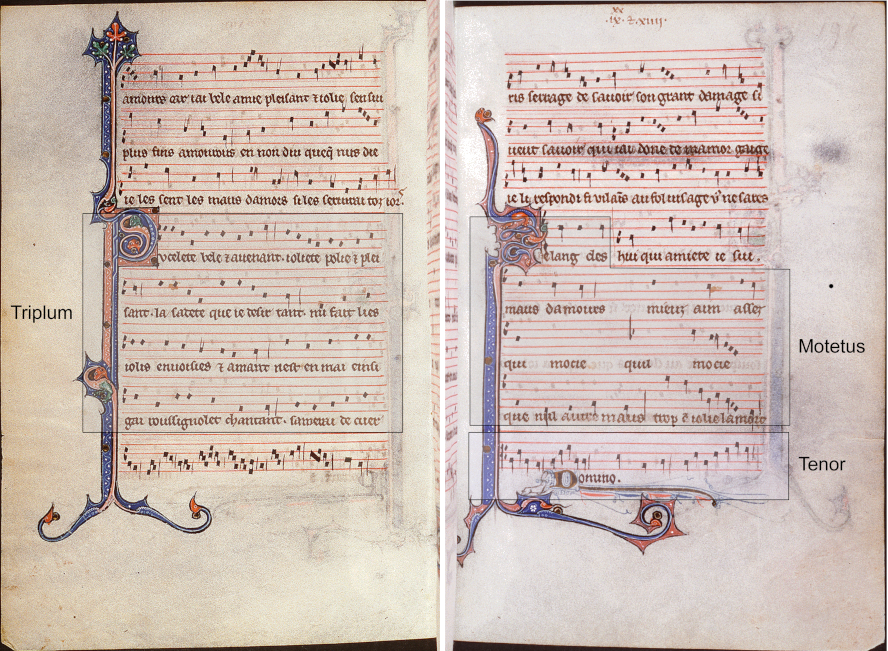 amours car iai bele amie pleisant ⁊ iolie sen sui
plus fins amourous en non diu queq̃ nus die
ie les sent les maus damors si les servirai toz iors
Triplum
Joliete bele ⁊ avenant. ioliete polie ⁊ plei
sant. la sadete que ie desir tant. mi fait lies
iolis envoisies ⁊ amant nest en mai einsi
gai roussignolet chantant. samerai de cuer
xx
ix. ⁊ xiiii.
ris servage de savoir son grant damage si
veut savoir qui iai done de mamor gaige
ie li respondi fi vilains au fol visage
elang des hui qui amiete ie sui.
maus damours mieuz aim assez
qui mocie quil mocie
que nul autre maus trop ẽ iolie lamort
Motetus
Tenor
Domino.